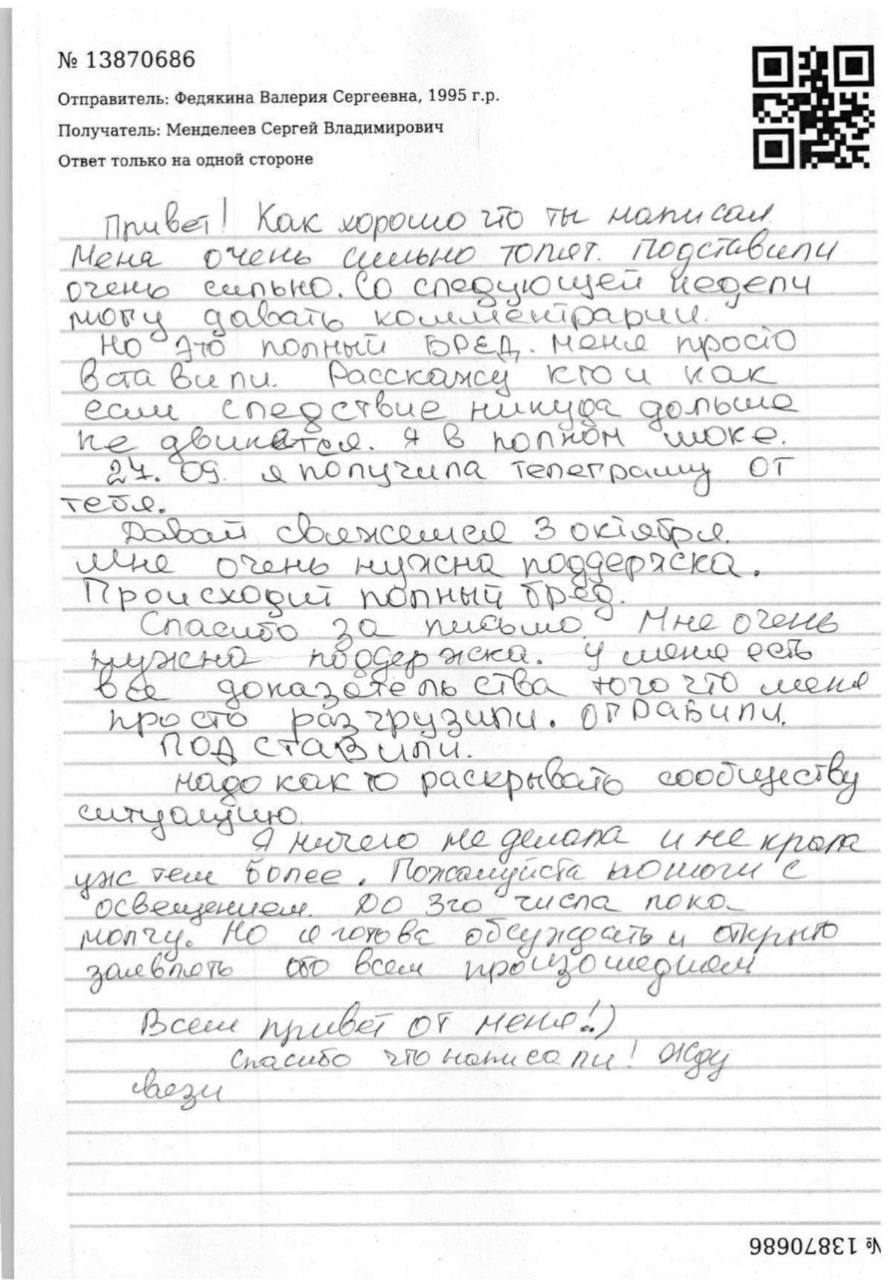 № 13870686
Отправитель: Федякина Валерия Сергеевна, 1995 г.р.
Получатель: Менделеев Сергей Владимирович
Ответ только на одной стороне
Привет! Как хорошо что ты написал.
Меня очень сильно топят. Подставили
очень сильно. Со следующей недели
могу давать комментрарии.
Но это полный БРЕД. Меня просто
вставили. Расскажу кто и как
если следствие никуда дольше
не двинется. Я в полном шоке.
27. 09. я получила телеграмму от
тебя.
Давай свяжемся 3 октября.
Мне очень нужна поддержка.
Происходит полный бред.
Спасибо за письмо. Мне очень
нужна поддержка. У меня есть
все доказательства того что меня
просто разгрузили. Ограбили.
ПОДСТАВИЛИ.
Надо как то раскрывать сообществу
ситуацию.
Я ничего не делала и не крала
уж тем более. Пожалуйста помоги с
освещением. До 3го числа пока
молчу. Но я готова обсуждать и открыто
заявлять обо всем произошедшем
Всем привет от меня!:)
Спасибо что написали! Жду
связи
№ 13870686